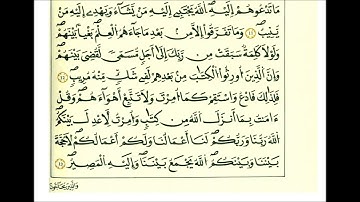 مَا تَدْعُوهُمْ إِلَيْهِ ۚ اللَّهُ يَجْتَبِي إِلَيْهِ مَن يَشَاءُ وَيَهْدِي إِلَيْهِ مَن
يُنِيبُ ١٣ وَمَا تَفَرَّقُوا إِلَّا مِن بَعْدِ مَا جَاءَهُمُ الْعِلْمُ بَغْيًا بَيْنَهُمْ ۚ
وَلَوْلَا كَلِمَةٌ سَبَقَتْ مِن رَّبِّكَ إِلَىٰ أَجَلٍ مُّسَمًّى لَّقُضِيَ بَيْنَهُمْ ۚ
وَإِنَّ الَّذِينَ أُورِثُوا الْكِتَابَ مِن بَعْدِهِمْ لَفِي شَكٍّ مِّنْهُ مُرِيبٍ ١٤
فَلِذَٰلِكَ فَادْعُ ۖ وَاسْتَقِمْ كَمَا أُمِرْتَ ۖ وَلَا تَتَّبِعْ أَهْوَاءَهُمْ ۖ وَقُلْ
آمَنتُ بِمَا أَنزَلَ اللَّهُ مِن كِتَابٍ ۖ وَأُمِرْتُ لِأَعْدِلَ بَيْنَكُمُ ۖ
اللَّهُ رَبُّنَا وَرَبُّكُمْ ۖ لَنَا أَعْمَالُنَا وَلَكُمْ أَعْمَالُكُمْ ۖ لَا حُجَّةَ
بَيْنَنَا وَبَيْنَكُمُ ۖ اللَّهُ يَجْمَعُ بَيْنَنَا ۖ وَإِلَيْهِ الْمَصِيرُ ١٥
وَالَّذِينَ يُحَاجُّونَ